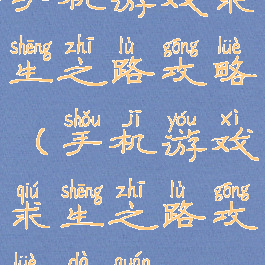 手机游戏求
shēng zhī lù gōng lüè
生之路攻略
shǒu jī yóu xì
（手机游戏
qiú shēng zhī lù gōng
求生之路攻
lüè dà quán